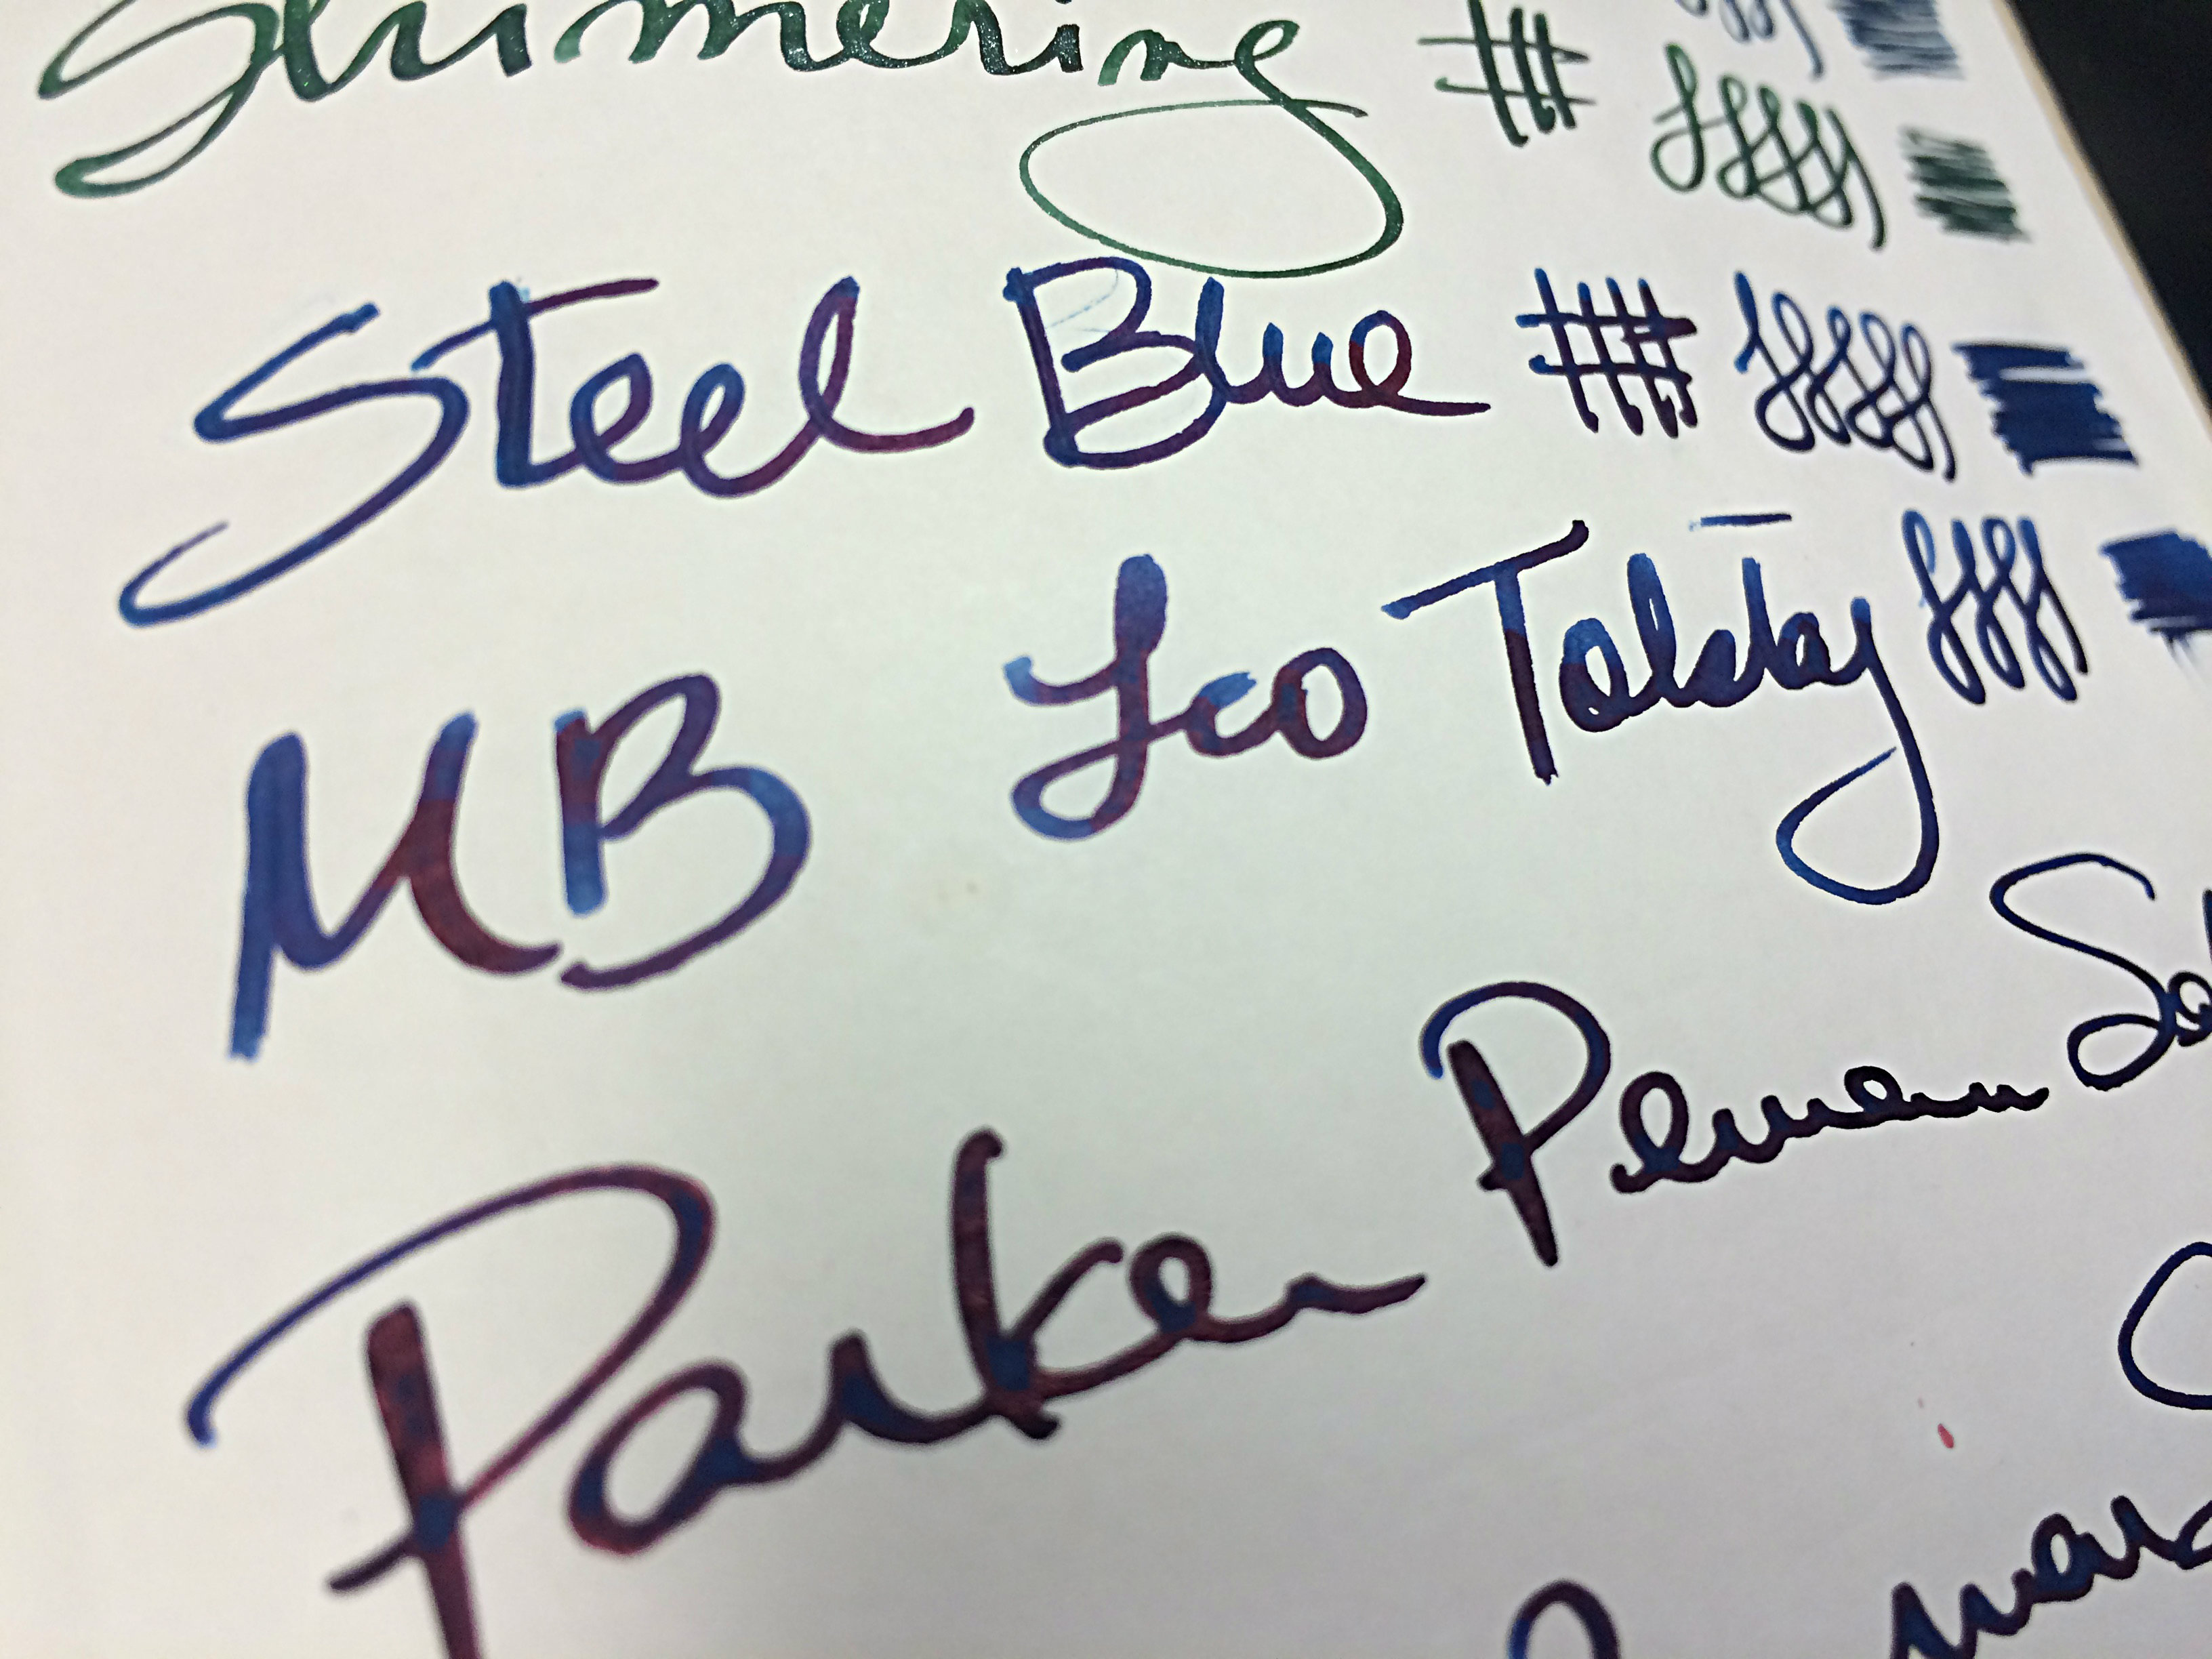 Shimering
Steel Blue
MB Leo Tolstoy
Parker Penman